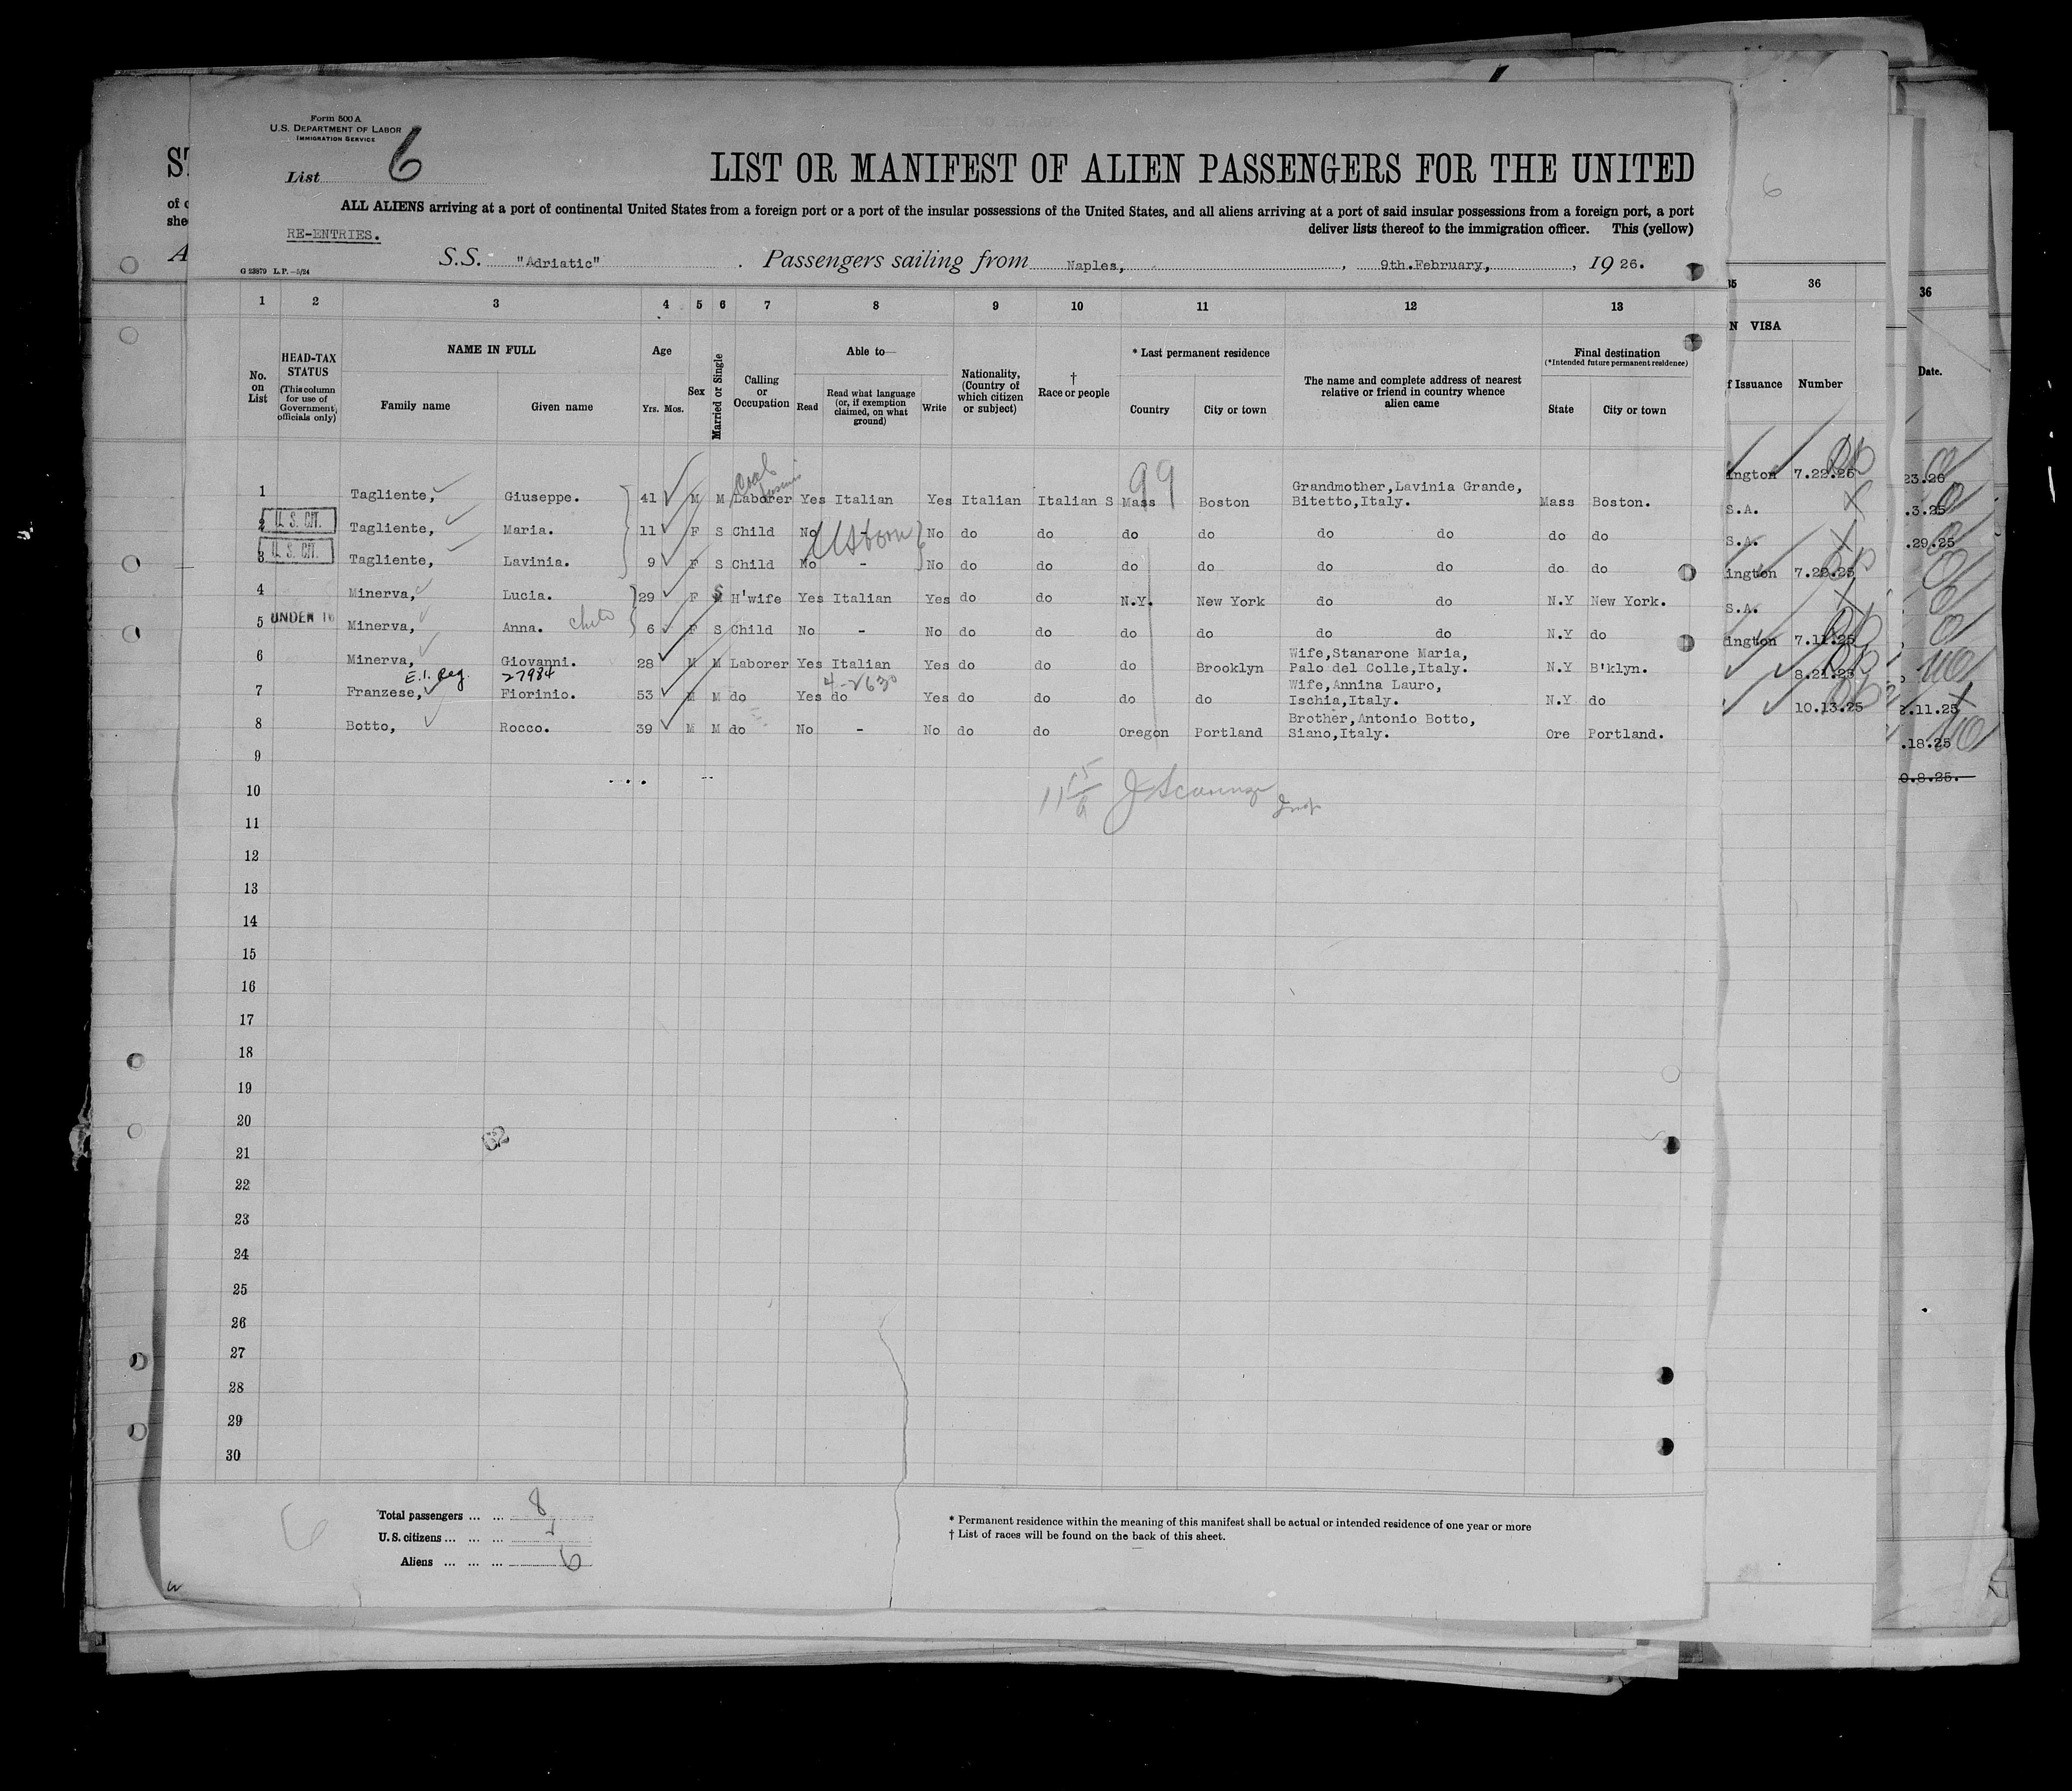 Form 500 A
U.S. DEPARTMENT OF LABOR
IMMIGRATION SERVICE
List 6
LIST OR MANIFEST OF ALIEN PASSENGERS FOR THE UNITED
ALL ALIENS arriving at a port of continental United States from a foreign port or a port of the insular possessions of the United States, and all aliens arriving at a port of said insular possessions from a foreign port, a port
deliver lists thereof to the immigration officer. This (yellow)
RE-ENTRIES.
S.S. "Adriatic" . Passengers sailing from Naples, , 9th.February, , 19 26.
G 23879 L.P.-5/24
1 2 3 4 5 6 7 8 9 10 11 12 13
No. on List
HEAD-TAX STATUS
(This column for use of Government officials only)
NAME IN FULL
Family name Given name
Age
Yrs. Mos.
Sex
Married or Single
Calling or Occupation
Able to—
Read
Read what language (or, if exemption claimed, on what ground)
Write
Nationality, (Country of which citizen or subject)
† Race or people
* Last permanent residence
Country City or town
The name and complete address of nearest relative or friend in country whence alien came
Final destination
(*Intended future permanent residence)
State City or town
99
1 Tagliente, Giuseppe. 41 M M Laborer Yes Italian Yes Italian Italian S Mass Boston Grandmother,Lavinia Grande, Bitetto,Italy. Mass Boston.
2 U.S. CIT. Tagliente, Maria. 11 F S Child No - No do do do do do do do do
US born
3 U.S. CIT. Tagliente, Lavinia. 9 F S Child No - No do do do do do do do do
4 Minerva, Lucia. 29 F M S H'wife Yes Italian Yes do do N.Y. New York do do N.Y New York.
5 UNDER 16 Minerva, Anna. child 6 F S Child No - No do do do do do do N.Y do
6 Minerva, Giovanni. 28 M M Laborer Yes Italian Yes do do do Brooklyn Wife,Stanarone Maria, Palo del Colle,Italy. N.Y B'klyn.
E.I. Reg. 27984
4-2630
7 Franzese, Fiorinio. 53 M M do Yes do Yes do do do do Wife,Annina Lauro, Ischia,Italy. N.Y do
8 Botto, Rocco. 39 M M do No - No do do Oregon Portland Brother,Antonio Botto, Siano,Italy. Ore Portland.
9
10
11
12
13
14
15
16
17
18
19
20
21
22
23
24
25
26
27
28
29
30
Total passengers ... ... 8
U.S. citizens ... ... ... 2
Aliens ... ... ... 6
6
* Permanent residence within the meaning of this manifest shall be actual or intended residence of one year or more
† List of races will be found on the back of this sheet.
6
35 36
N VISA
f Issuance Number
ington 7.22.26
S.A.
S.A.
ington 7.22.25
S.A.
ington 7.11.25
8.21.25
10.13.25
36
Date.
23.26
.3.25
.29.25
2.11.25
.18.25
0.8.25.